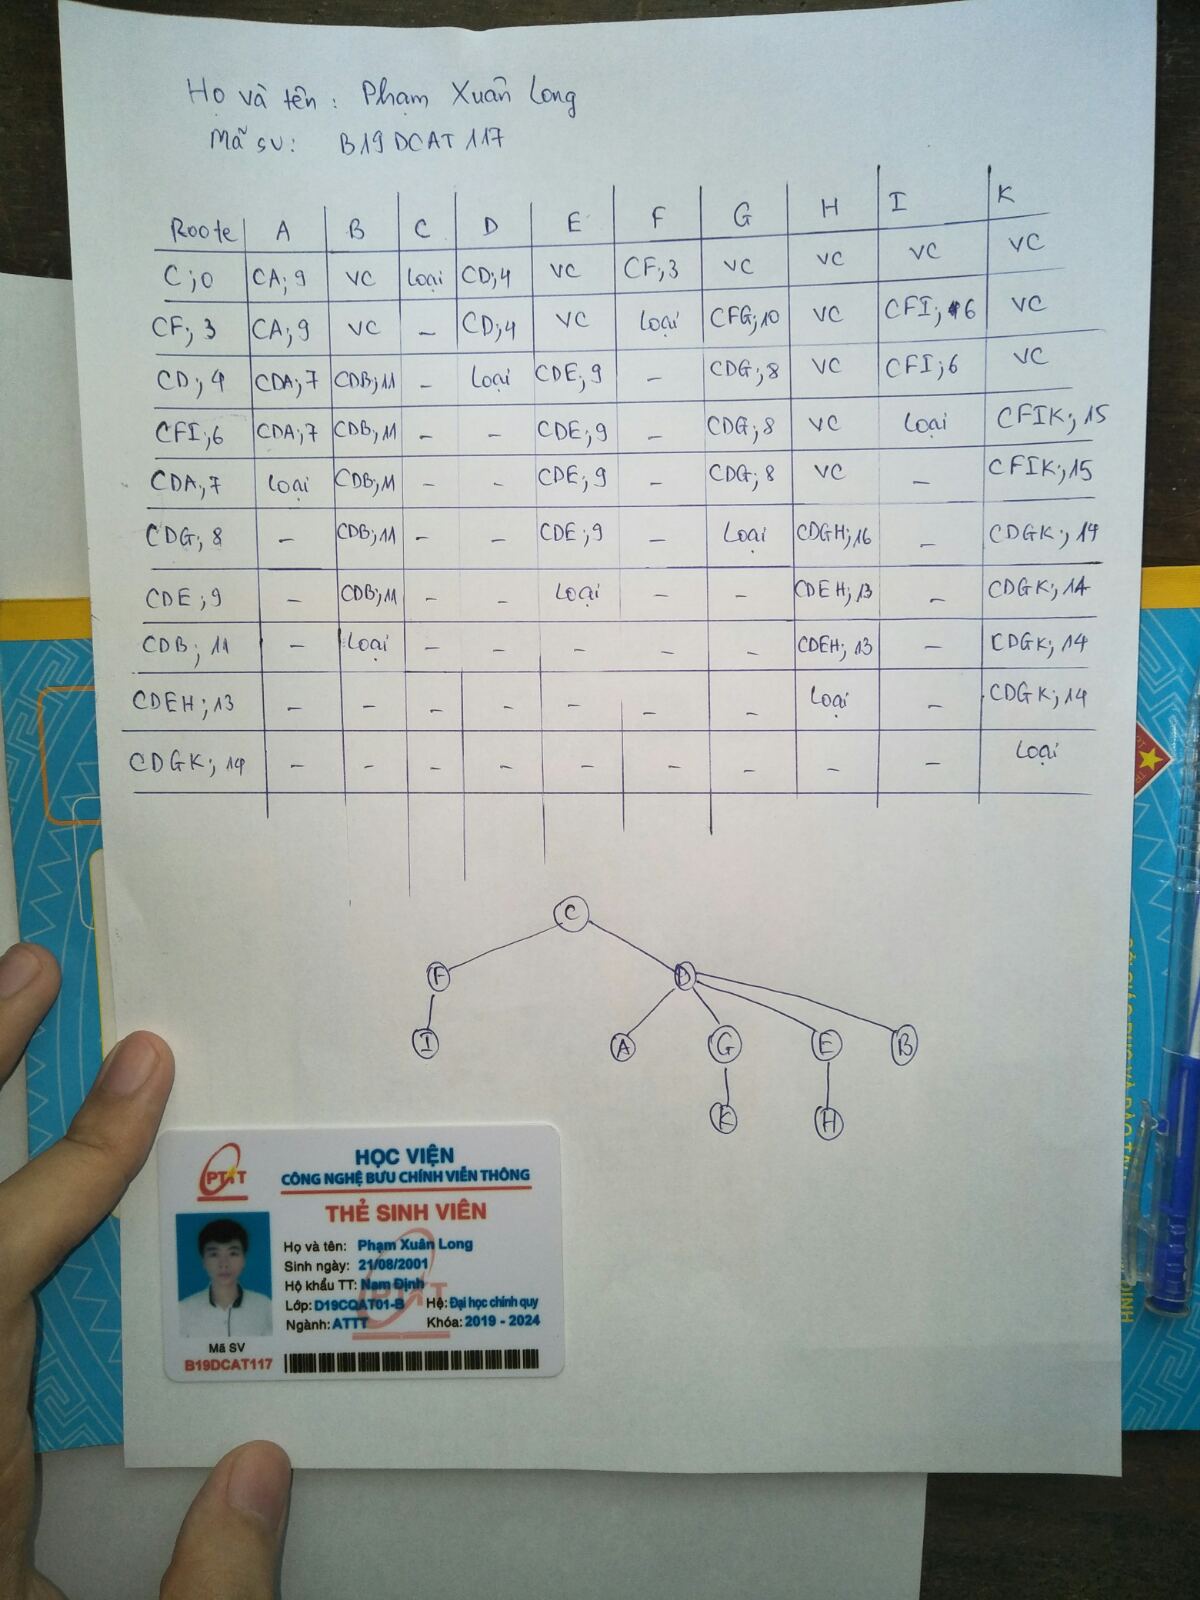 Họ và tên : Phạm Xuân Long
Mã sv: B19DCAT117
Roote A B C D E F G H I K
C;0 CA;9 VC Loại CD;4 VC CF;3 VC VC VC VC
CF;3 CA;9 VC - CD;4 VC Loại CFG;10 VC CFI;6 VC
CD;4 CDA;7 CDB;11 - Loại CDE;9 - CDG;8 VC CFI;6 VC
CFI;6 CDA;7 CDB;11 - - CDE;9 - CDG;8 VC Loại CFIK;15
CDA;7 Loại CDB;11 - - CDE;9 - CDG;8 VC - CFIK;15
CDG;8 - CDB;11 - - CDE;9 - Loại CDGH;16 - CDGK;14
CDE;9 - CDB;11 - - Loại - - CDEH;13 - CDGK;14
CDB;11 - Loại - - - - - CDEH;13 - CDGK;14
CDEH;13 - - - - - - - Loại - CDGK;14
CDGK;14 - - - - - - - - - Loại
C
F D
I A G E B
K H
PTIT
HỌC VIỆN
CÔNG NGHỆ BƯU CHÍNH VIỄN THÔNG
THẺ SINH VIÊN
Họ và tên: Phạm Xuân Long
Sinh ngày: 21/08/2001
Hộ khẩu TT: Nam Định
Lớp: D19CQAT01-B Hệ: Đại học chính quy
Ngành: ATTT Khóa: 2019 - 2024
Mã SV
B19DCAT117